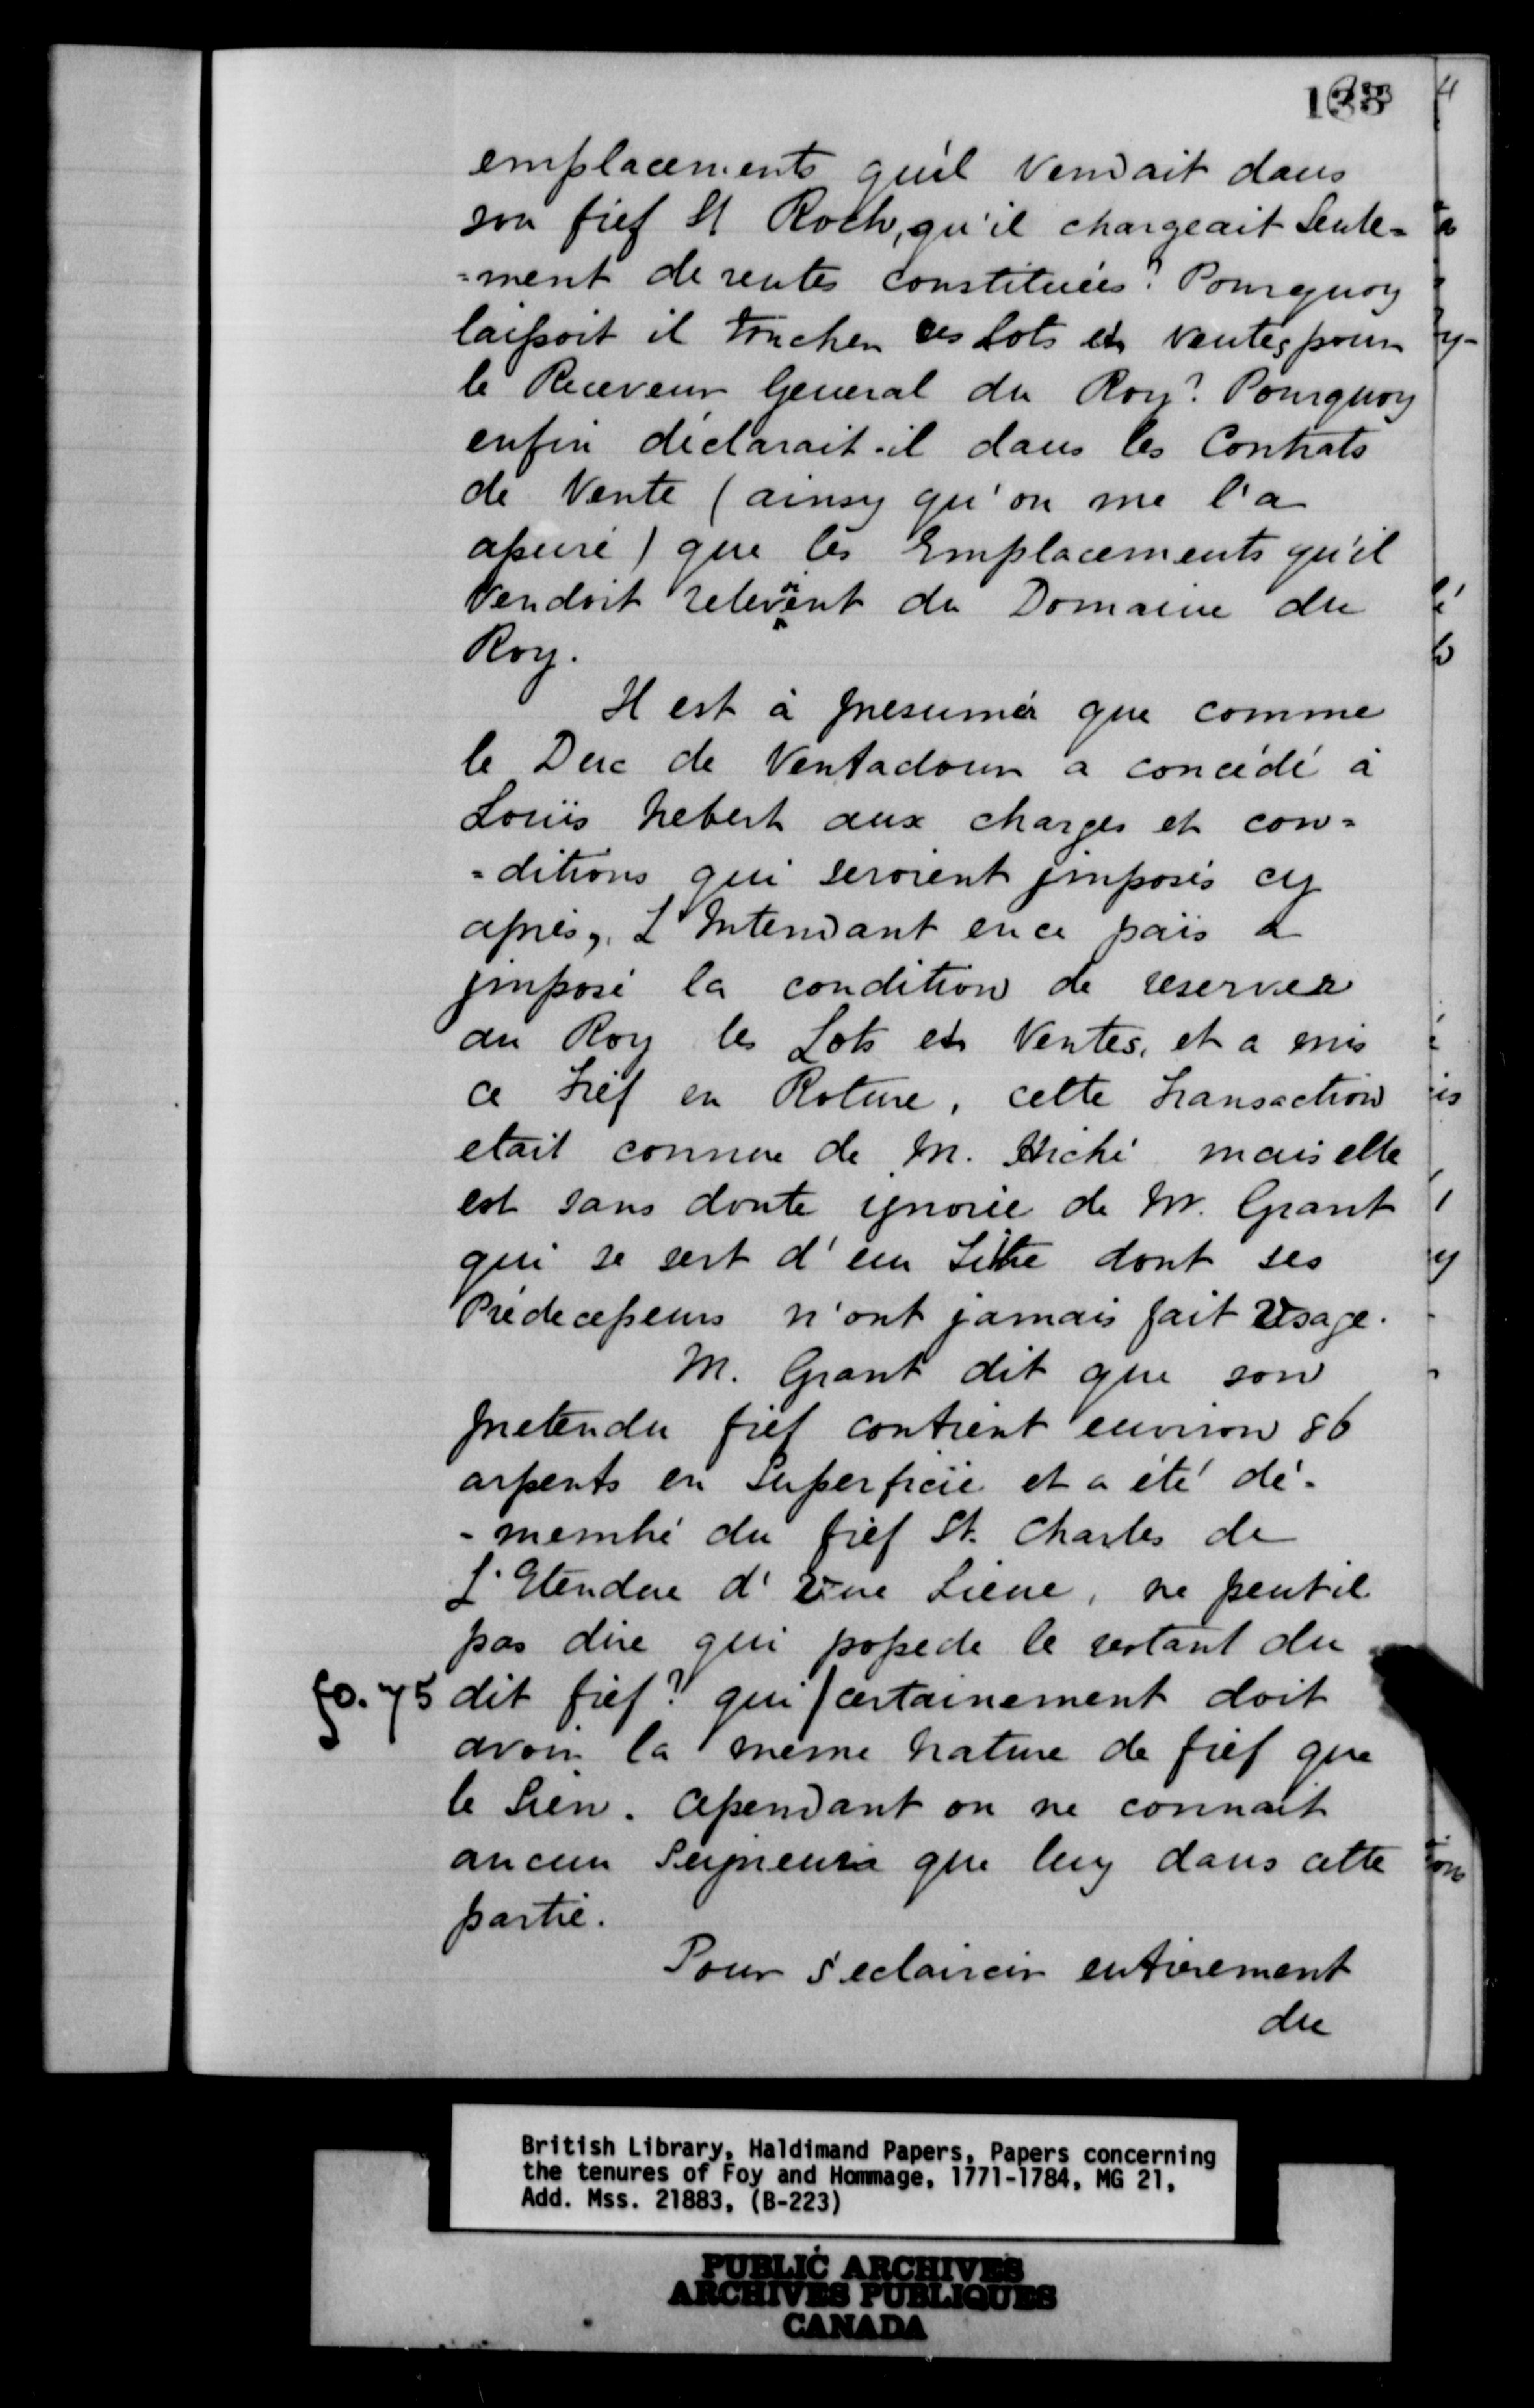 133
emplacements qu'il Vendait dans
son fief St Roch, qu'il chargeait Seule=
=ment de rentes constituées? Pourquoy
laissoit il toucher ces Lots et Ventes pour
le Receveur General du Roy? Pourquoy
enfin déclarait-il dans les Contrats
de Vente (ainsy qu'on me l'a
assuré) que les Emplacements qu'il
Vendoit relevoient du Domaine du
Roy.
Il est à presumer que comme
le Duc de Ventadour a concédé à
Louïs hebert aux charges et con=
=ditions qui seroient jmposés cy
après, L'Intendant en ce païs a
jmposé la condition de reserver
au Roy les Lots et Ventes, et a mis
ce Fief en Roture, cette transaction
etait connue de M. Hiché mais elle
est sans doute ignorée de M. Grant
qui se sert d'un titre dont ses
Prédecesseurs n'ont jamais fait Usage.
M. Grant dit que son
pretendu fief contient environ 86
arpents en Superficie et a été dé-
-membré du fief St. Charles de
L'Etendue d'Une Lieue, ne peut-il
pas dire qui possede le restant du
fo. 75 dit fief? qui/certainement doit
avoir la meme Nature de fief que
le Sien. Cependant on ne connait
aucun Seigneurs que luy dans cette
partie.
Pour s'eclaircir entierement
du
British Library, Haldimand Papers, Papers concerning
the tenures of Foy and Hommage, 1771-1784, MG 21,
Add. Mss. 21883, (B-223)
PUBLIC ARCHIVES
ARCHIVES PUBLIQUES
CANADA